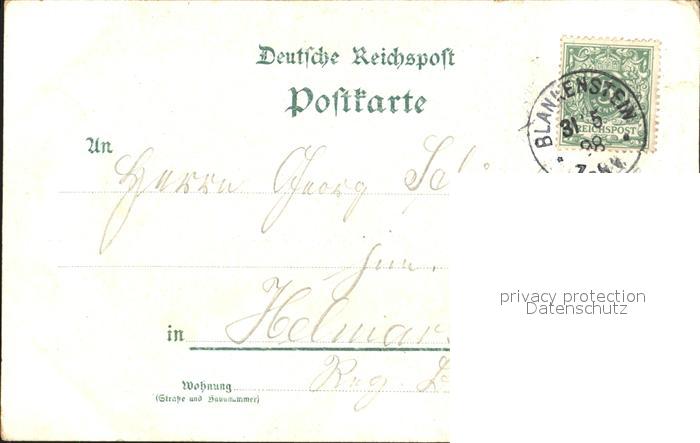 Deutsche Reichspost
Postkarte
An
Herrn Georg
jun.
in Helmar
Reg.
Wohnung
(Straße und Hausnummer)
REICHSPOST
BLANKENSTEIN
31 5
98
privacy protection
Datenschutz